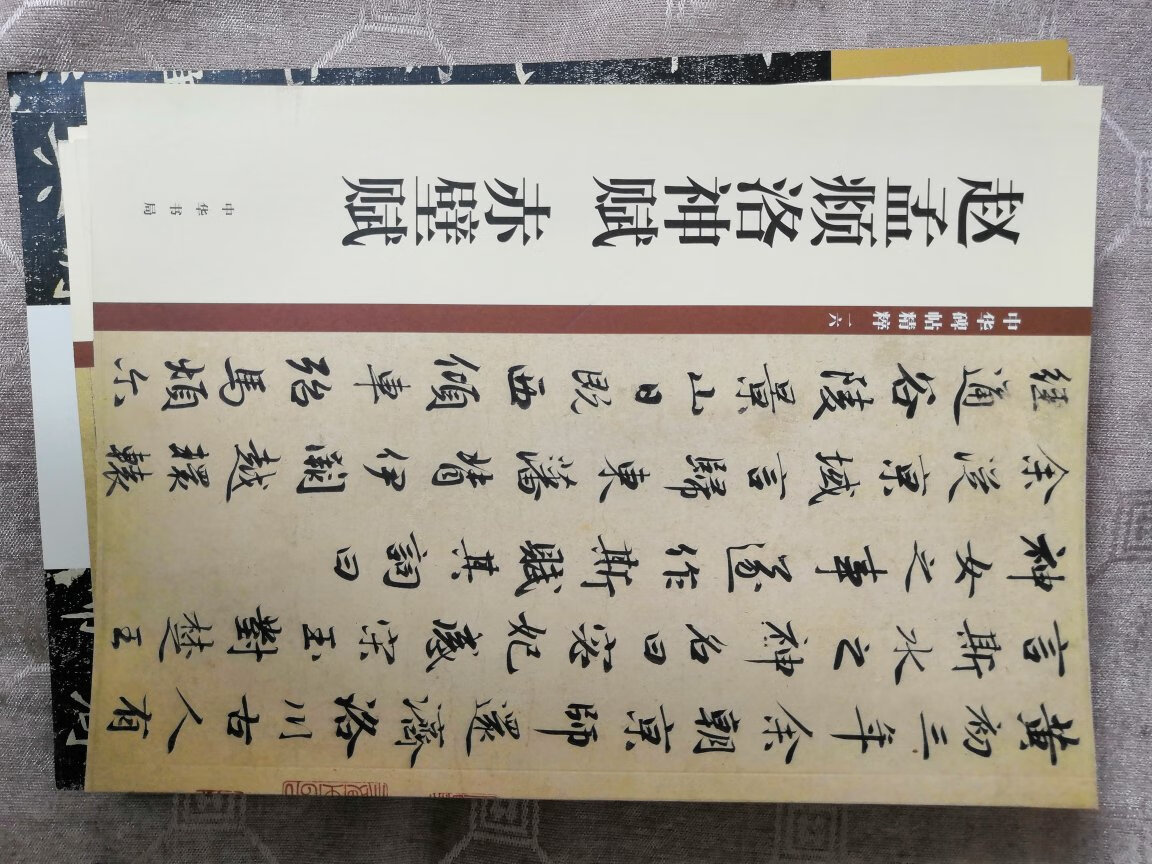 赵孟頫洛神赋 赤壁赋
中华书局
中华碑帖精粹 一六
黄初三年余朝京師還濟洛川古人有
言斯水之神名曰宓妃感宋玉對楚王
神女之事遂作斯賦其詞曰
余從京域言歸東藩背伊闕越轘轅
經通谷陵景山日既西傾車殆馬煩尒